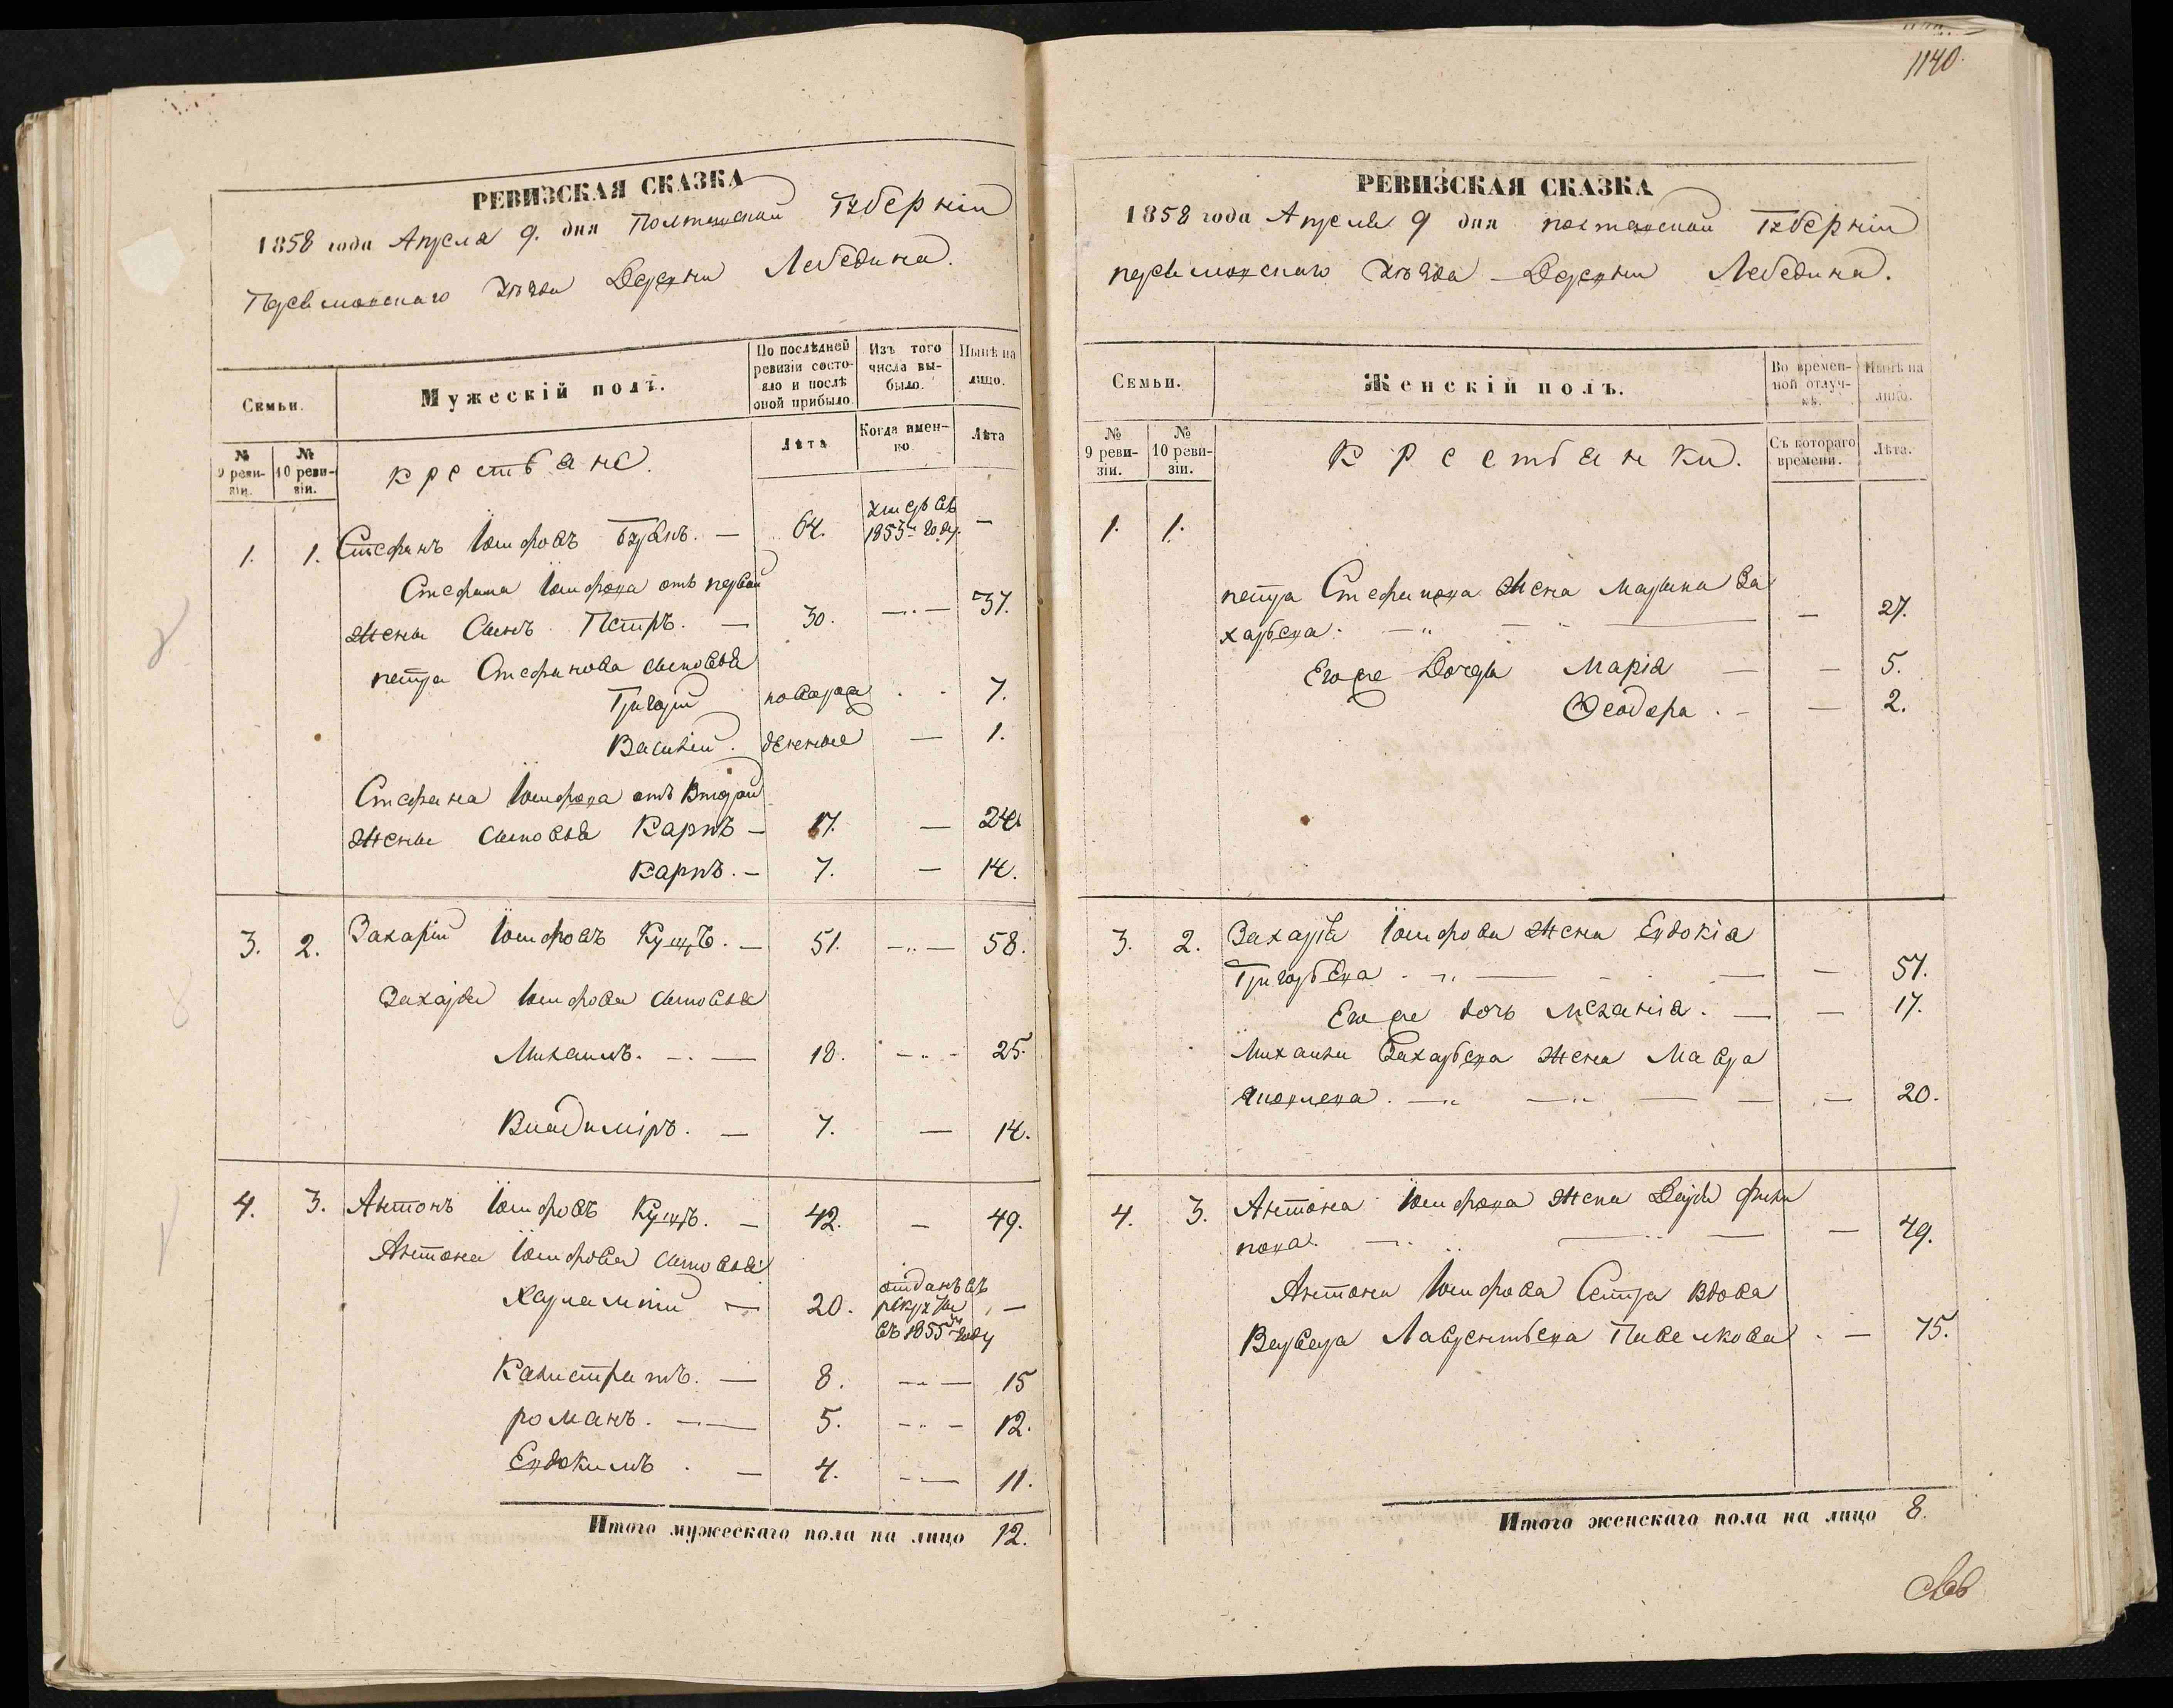 РЕВИЗСКАЯ СКАЗКА
1858 года Апреля 9. дня Полтавской Губерніи
Уѣзда Деревни Лебедина.
Семьи.
Мужескій полъ.
По послѣдней ревизіи состояло и послѣ оной прибыло.
Изъ того числа выбыло.
Нынѣ на лицо.
№ 9 ревизіи.
№ 10 ревизіи.
крестьяне.
Лѣта
Когда именно
Лѣта
1. 1. Стефанъ Іосифовъ — 64. умеръ въ 1853м году. —
Стефана Іосифова отъ первой
жены Сынъ Петръ. — 30. — 37.
петра Стефанова сыновья
Григорій новорож 7.
Василій. денные — 1.
Стефана Іосифова отъ второй
жены сыновья Карпъ — 17. — 24.
Карпъ. — 7. — 14.
3. 2. Захарій Іосифовъ — 51. — 58.
Захарія Іосифова сыновья
Михаилъ. — 18. — 25.
Владиміръ. — 7. — 14.
4. 3. Антонъ Іосифовъ — 42. — 49.
Антона Іосифова сыновья
Харлампій — 20. отданъ въ рекруты въ 1855м году —
Калистратъ. — 8. — 15
романъ. — 5. — 12.
Евдокимъ. — 4. — 11.
Итого мужескаго пола на лицо 12.
1140.
РЕВИЗСКАЯ СКАЗКА
1858 года Апреля 9 дня полтавской Губерніи
уѣзда Деревни Лебедина.
Семьи.
Женскій полъ.
Во временной отлучкѣ.
Нынѣ на лицо.
№ 9 ревизіи.
№ 10 ревизіи.
Крестьянки.
Съ котораго времени.
Лѣта.
1. 1.
петра Стефанова жена Марина За
харьева. — — 27.
Егоже Дочери Марія — — 5.
Феодора. — — 2.
3. 2. Захарія Іосифова жена Евдокія
Григорьева. — — 57.
Егоже дочь Меланія. — — 17.
Михаила Захарьева жена Мавра
— 20.
4. 3. Антона Іосифова жена Дарья Фили
пова. — — 49.
Антона Іосифова Сестра вдова
Варвара Лаврентьева — 75.
Итого женскаго пола на лицо 8.